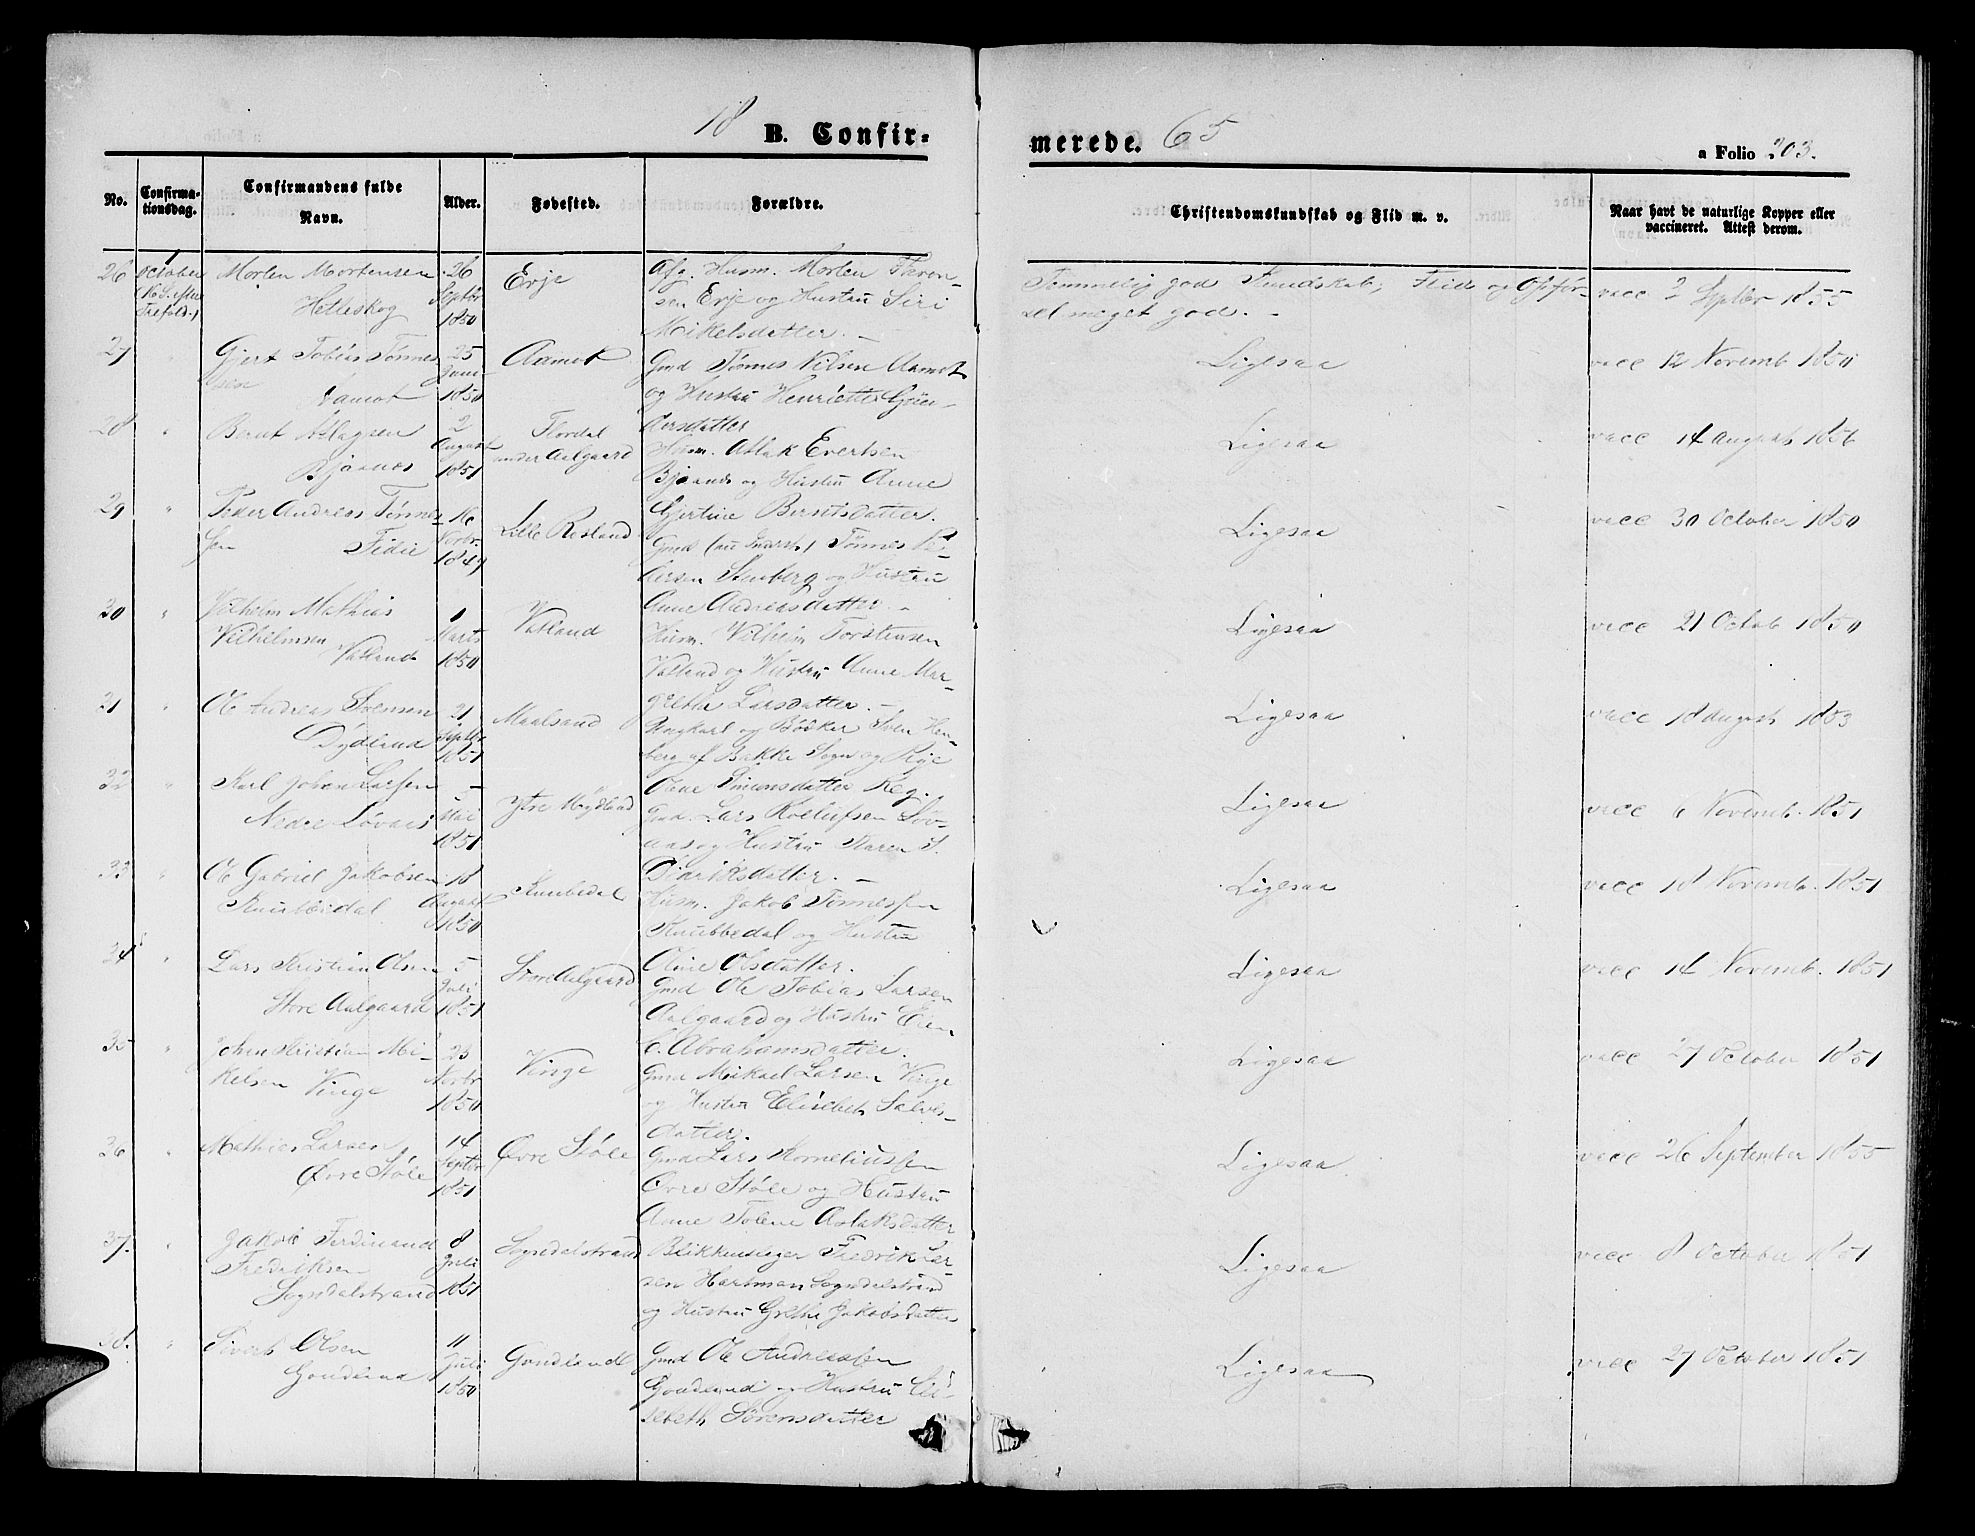 18 B. Confir-
merede. 65
a Folio 203.
No.
Confirma-
tionsdag.
Confirmandens fulde
Navn.
Alder.
Fødested.
Forældre.
Christendomskundskab og Flid m. v.
Naar havt de naturlige Kopper eller
vaccineret. Attest derom.
26
1
October
Morten Mortensen
Helleskog
26
Septbr
1850
Erje
Afg. Husm. Morten
sen Erje og Hustru Siri
Mikelsdatter. —
Temmelig god Kundskab, Flid og Opfør-
sel meget god. -
vacc 2 Septbr 1855
27
"
Gjert Tobias Tønnes
sen
Aamot
25
Juni
1850
Aamot
Gmd Tønnes Nilsen Aamot
og Hustru Henriette
dersdatter
Ligesaa
vacc 12 Novemb 1850
28
"
Bernt Atlagsen
Bjaanes
2
August
1851
Flordal
under Aalgaard
Husm. Atlak Evertsen
og Hustru Anne
Gjertine Berntsdatter.
Ligesaa
vacc 14 August 1856
29
"
Peder Andreas Tønnes
sen Fidie
16
Novbr.
1849
Lille Resland
Gmd Tønnes Pe-
dersen Stenberg og Hustru
Anne Andreasdatter. -
Ligesaa
vacc 30 October 1850
30
"
Vilhelm Mathias
Vilhelmsen
Vatland
1
Marts
1850
Vatland
Husm. Vilhelm Torstensen
Vatland og Hustru Anne Mar-
grethe Larsdatter. -
Ligesaa
vacc 21 Octob 1850
31
"
Ole Andreas Svensen
Dydland
21
Septbr
1851
Maalsand
Ungkarl og Bødker Sven Hen-
berg af Bakke Sogn og Pige
Olene Simonsdatter Reg.
Ligesaa
vacc 18 August 1853
32
"
Karl Johan Larsen
Nedre Løvaas
5
Mai
1851
Ytre Mydland
Gmd. Lars Rolлufsen Løv-
aas og Hustru Karen S.
Dideriksdatter. —
Ligesaa
vacc 6 Novemb. 1851
33
"
Ole Gabriel Jakobsen
Knubedal
18
August
1850
Knubedal
Husm. Jakob Tønnessen
Knubbedal og Hustru
Oline Olsdatter.
Ligesaa
vacc 18 Novemb. 1851
34
"
Lars Kristian Olsen
Store Aalgaard
5
Juli
1851
Store Aalgaard
Gmd Ole Tobias Larsen
Aalgaard og Hustru Elen
C. Abrahamsdatter.
Ligesaa
vacc 14 Novemb. 1851
35
"
Johan Kristian Mi-
kelsen Vinge
23
Novbr
1850
Vinge
Gmd Mikael Larsen Vinge
og Hustru Elisebet Salves-
datter.
Ligesaa
vacc 27 October 1851
36
"
Mathias Larsen
Øvre Støle
14
Septbr
1851
Øvre Støle
Gmd Lars Korneliussen
Øvre Støle og Hustru
Anne Tolene Aslaksdatter
Ligesaa
vacc 26 September 1855
37.
"
Jakob Ferdinand
Fredriksen
Sogndalstrand
8
Juli
1851
Sogndalstrand
Blikkenslager Fredrik Lar-
sen Hartman Sogndalstrand
og Hustru Grethe Jakobsdatter
Ligesaa
vacc 8 October 1851
38.
"
Sivert Olsen
Godland
11
Juli
1850
Gmd Ole Andreassen
og Hustru Eli-
sebeth Sørensdatter
Ligesaa
vacc 27 October 1851